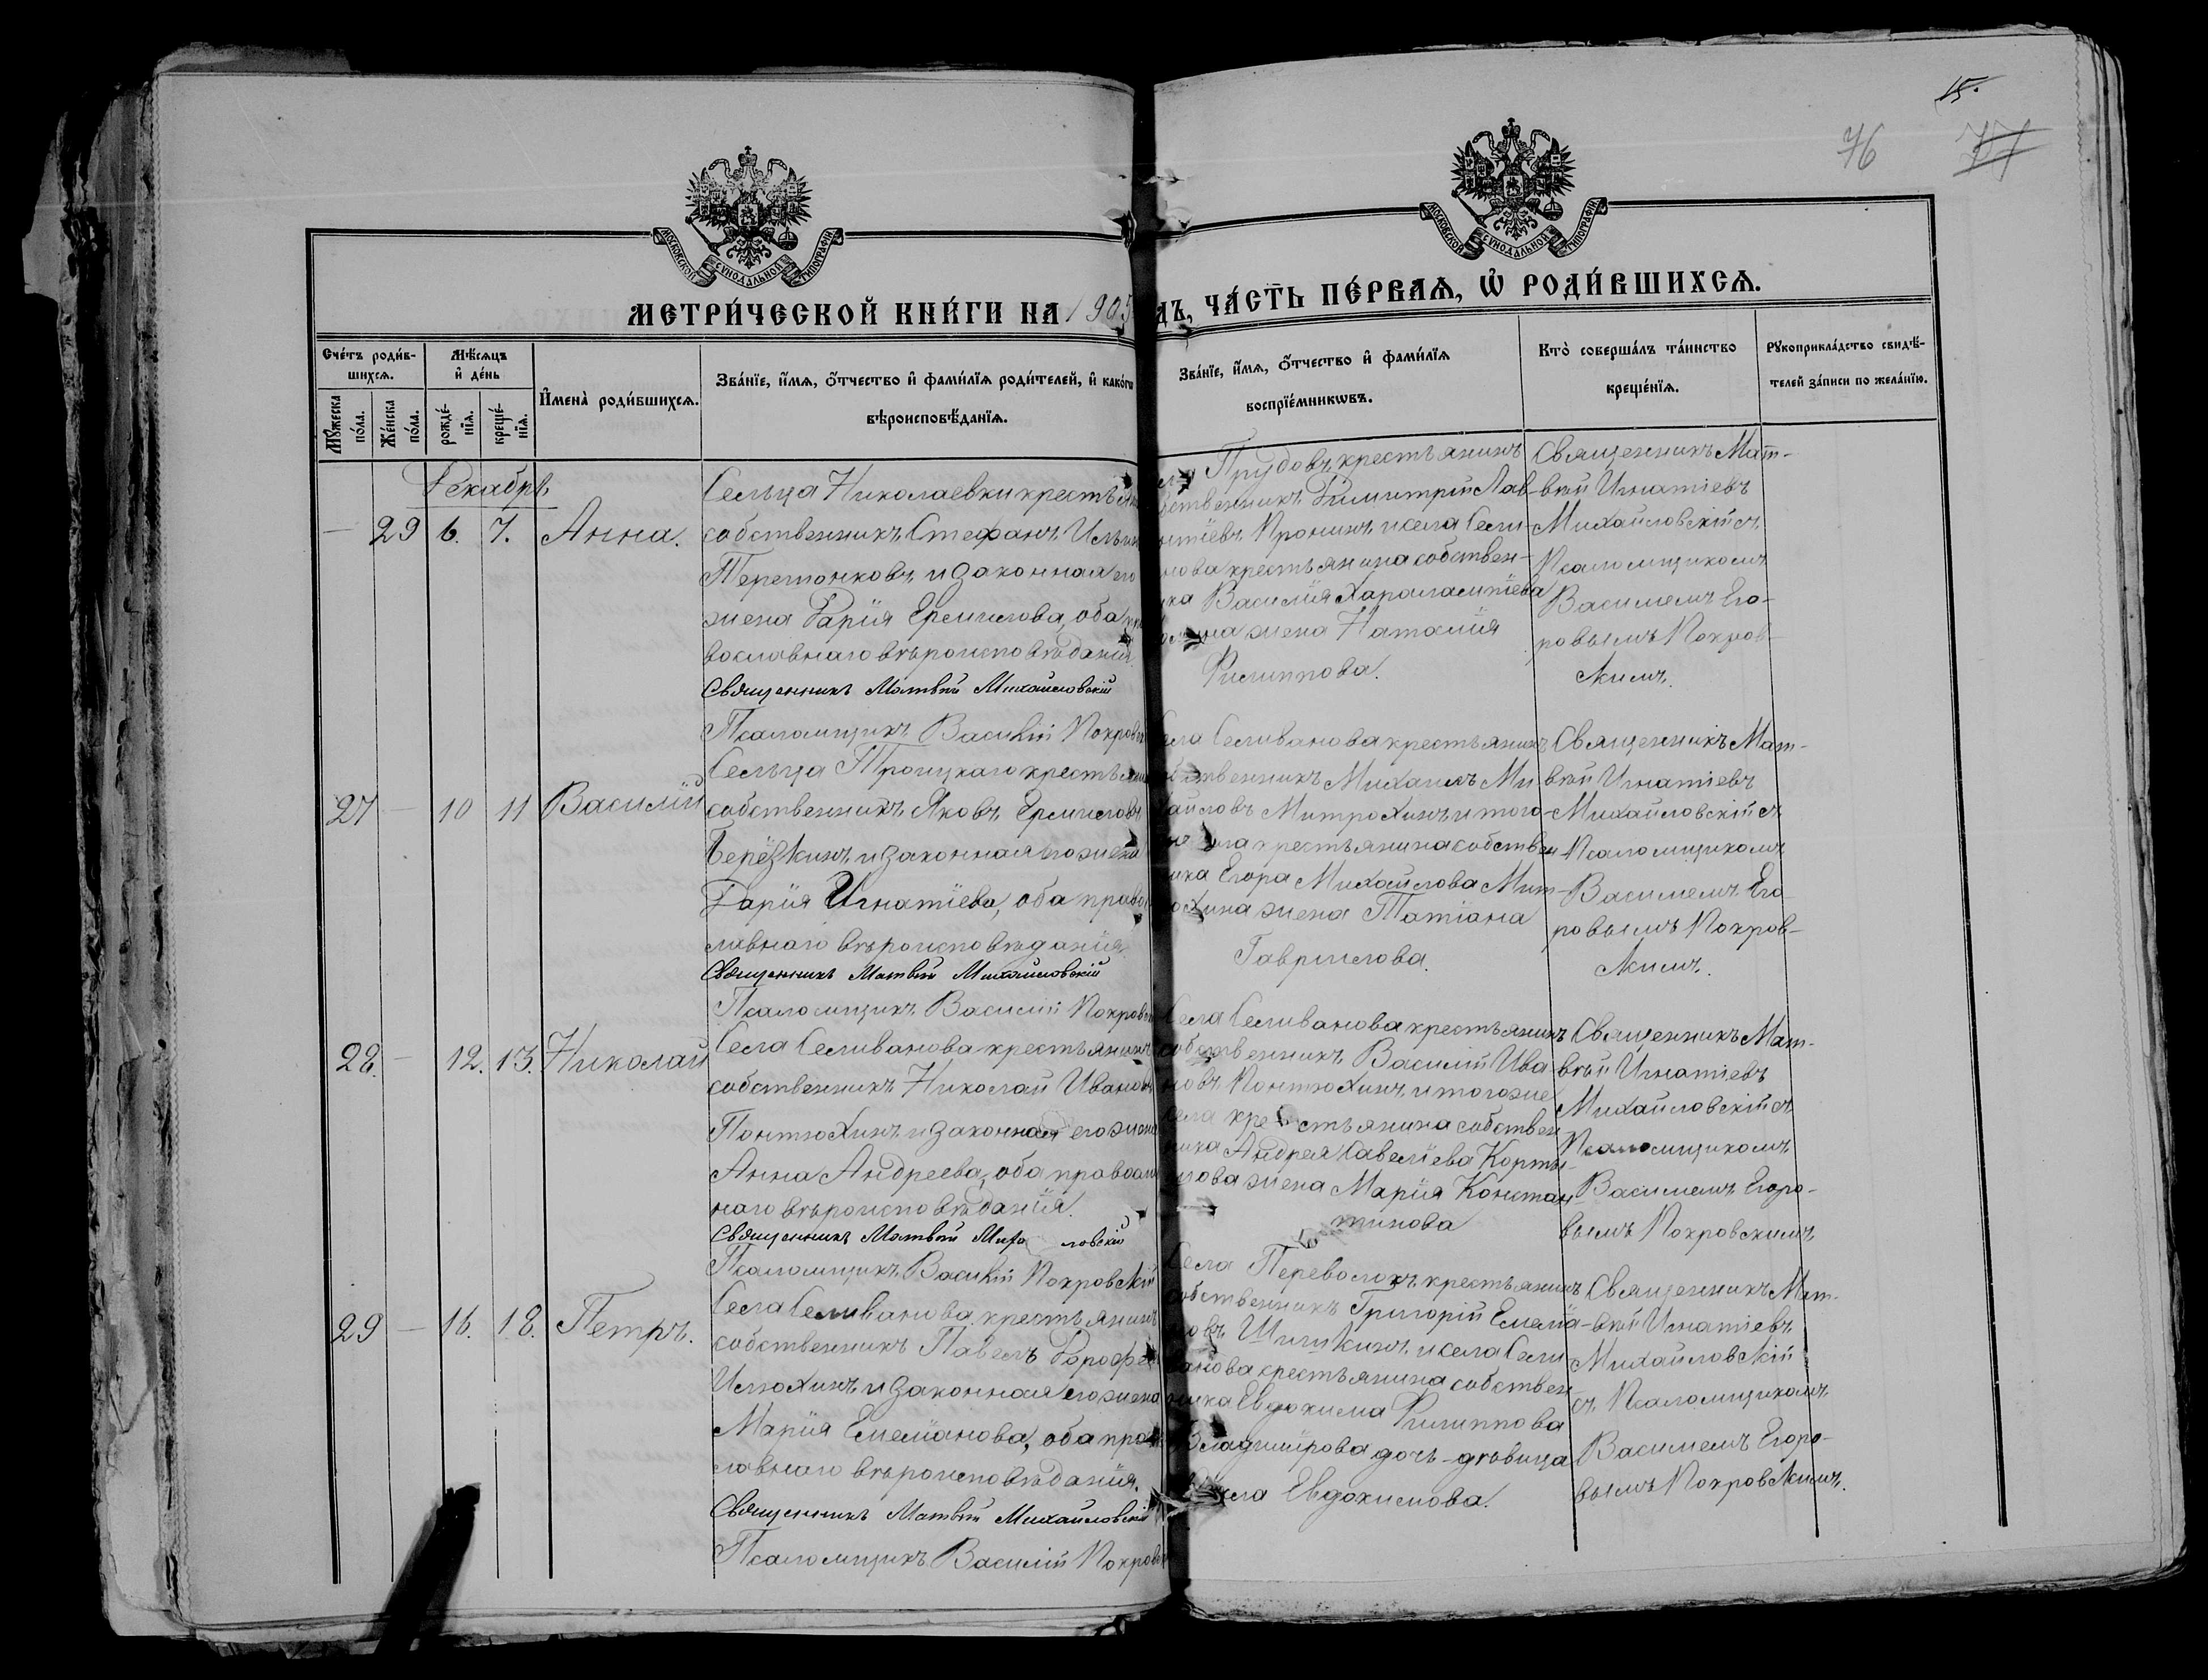 15.
76 77
МОСКОВСКОЙ СѴНОДАЛЬНОЙ ТИПОГРАФІИ
МОСКОВСКОЙ СѴНОДАЛЬНОЙ ТИПОГРАФІИ
МЕТРИ́ЧЕСКОЙ КНИ́ГИ НА 1905
ДЪ, ЧА́СТЬ ПЕ́РВАЯ, Ѿ РОДИ́ВШИХСЯ.
Сче́тъ роди́в-
шихся.
Мѣ́сяцъ
и҆ де́нь
Мꙋ́жеска по́ла.
Же́нска по́ла.
рожде́-
нїя.
креще́-
нїя.
И҆мена̀ роди́вшихся.
Зва́нїе, и҆́мя, ѻ҆́тчество и҆ фами́лїя роди́телей, и҆ како́гѡ
вѣроисповѣ́данїя.
Зва́нїе, и҆́мя, ѻ҆́тчество и҆ фами́лїя
воспрїе́мникѡвъ.
Кто̀ соверша́лъ та́инство
креще́нїя.
Рꙋкоприкла́дство свидѣ́-
телей за́писи по жела́нїю.
Декабрь
— 29 6. 7. Анна.
Сельца Николаевки крестьян
собственникъ Стефанъ Ильин
Теретонковъ и законная его
жена Дарія Ермилова, оба пра
вославнаго вѣроисповѣданія.
Священникъ Матвѣй Михайловскій
Псаломщикъ Василій Покровск
Прудовъ крестьянинъ
ственникъ Димитрій Лав-
нтіевъ Пронинъ и села Сели-
нова крестьянина собствен-
ика Василія Харлампіева
жена Наталія
Филиппова.
Священникъ Мат-
вѣй Игнатіевъ
Михайловскій съ
Псаломщикомъ
Василіемъ Его-
ровымъ Покров-
скимъ.
27 — 10 11 Василій
Сельца Троицкаго крестьянин
собственникъ Яковъ Ермиловъ
Берёзкинъ и законная его жена
Дарія Игнатіева, оба правос
лавнаго вѣроисповѣданія
Священникъ Матвѣй Михайловскій
Псаломщикъ Василій Покровск
ела Селиванова крестьянинъ
ственникъ Михаилъ Ми
айловъ Митрохинъ и того-
ела крестьянина собствен
ика Егора Михайлова Мит-
охина жена Татіана
Гаврилова.
Священникъ Мат-
вѣй Игнатіевъ
Михайловскій съ
Псаломщикомъ
Василіемъ Его-
ровымъ Покров-
скимъ.
28. — 12. 13. Николай
Села Селиванова крестьянинъ
собственникъ Николай Ивановъ
Понтюхинъ и законная его жена
Анна Андреева, оба православ
наго вѣроисповѣданія.
Священникъ Матвѣй Миха ловскій
Псаломщикъ Василій Покровскій
Села Селиванова крестьянинъ
собственникъ Василій Ива
новъ Понтюхинъ и того же
села крестьянина собствен
ника Андрея Савеліева Корты-
лова жена Марія Констан
тинова
Священникъ Мат-
вѣй Игнатіевъ
Михайловскій съ
Псаломщикомъ
Василіемъ Егоро-
вымъ Покровскимъ
29 — 16. 18. Петръ.
Села Селиванова крестьянинъ
собственникъ Павелъ Дорофее
Илюхинъ и законная его жена
Марія Емеліанова, оба право
славнаго вѣроисповѣданія.
Священникъ Матвѣй Михайловскій
Псаломщикъ Василій Покровск
Села Переволокъ крестьянинъ
собственникъ Григорій Емелія-
новъ Шишкинъ и села Сели
ванова крестьянина собствен
ника Евдокима Филиппова
Владимірова дочь-дѣвица
Евдокимова.
Священникъ Мат-
вѣй Игнатіевъ
Михайловскій
съ Псаломщикомъ
Василіемъ Егоро-
вымъ Покровскимъ.